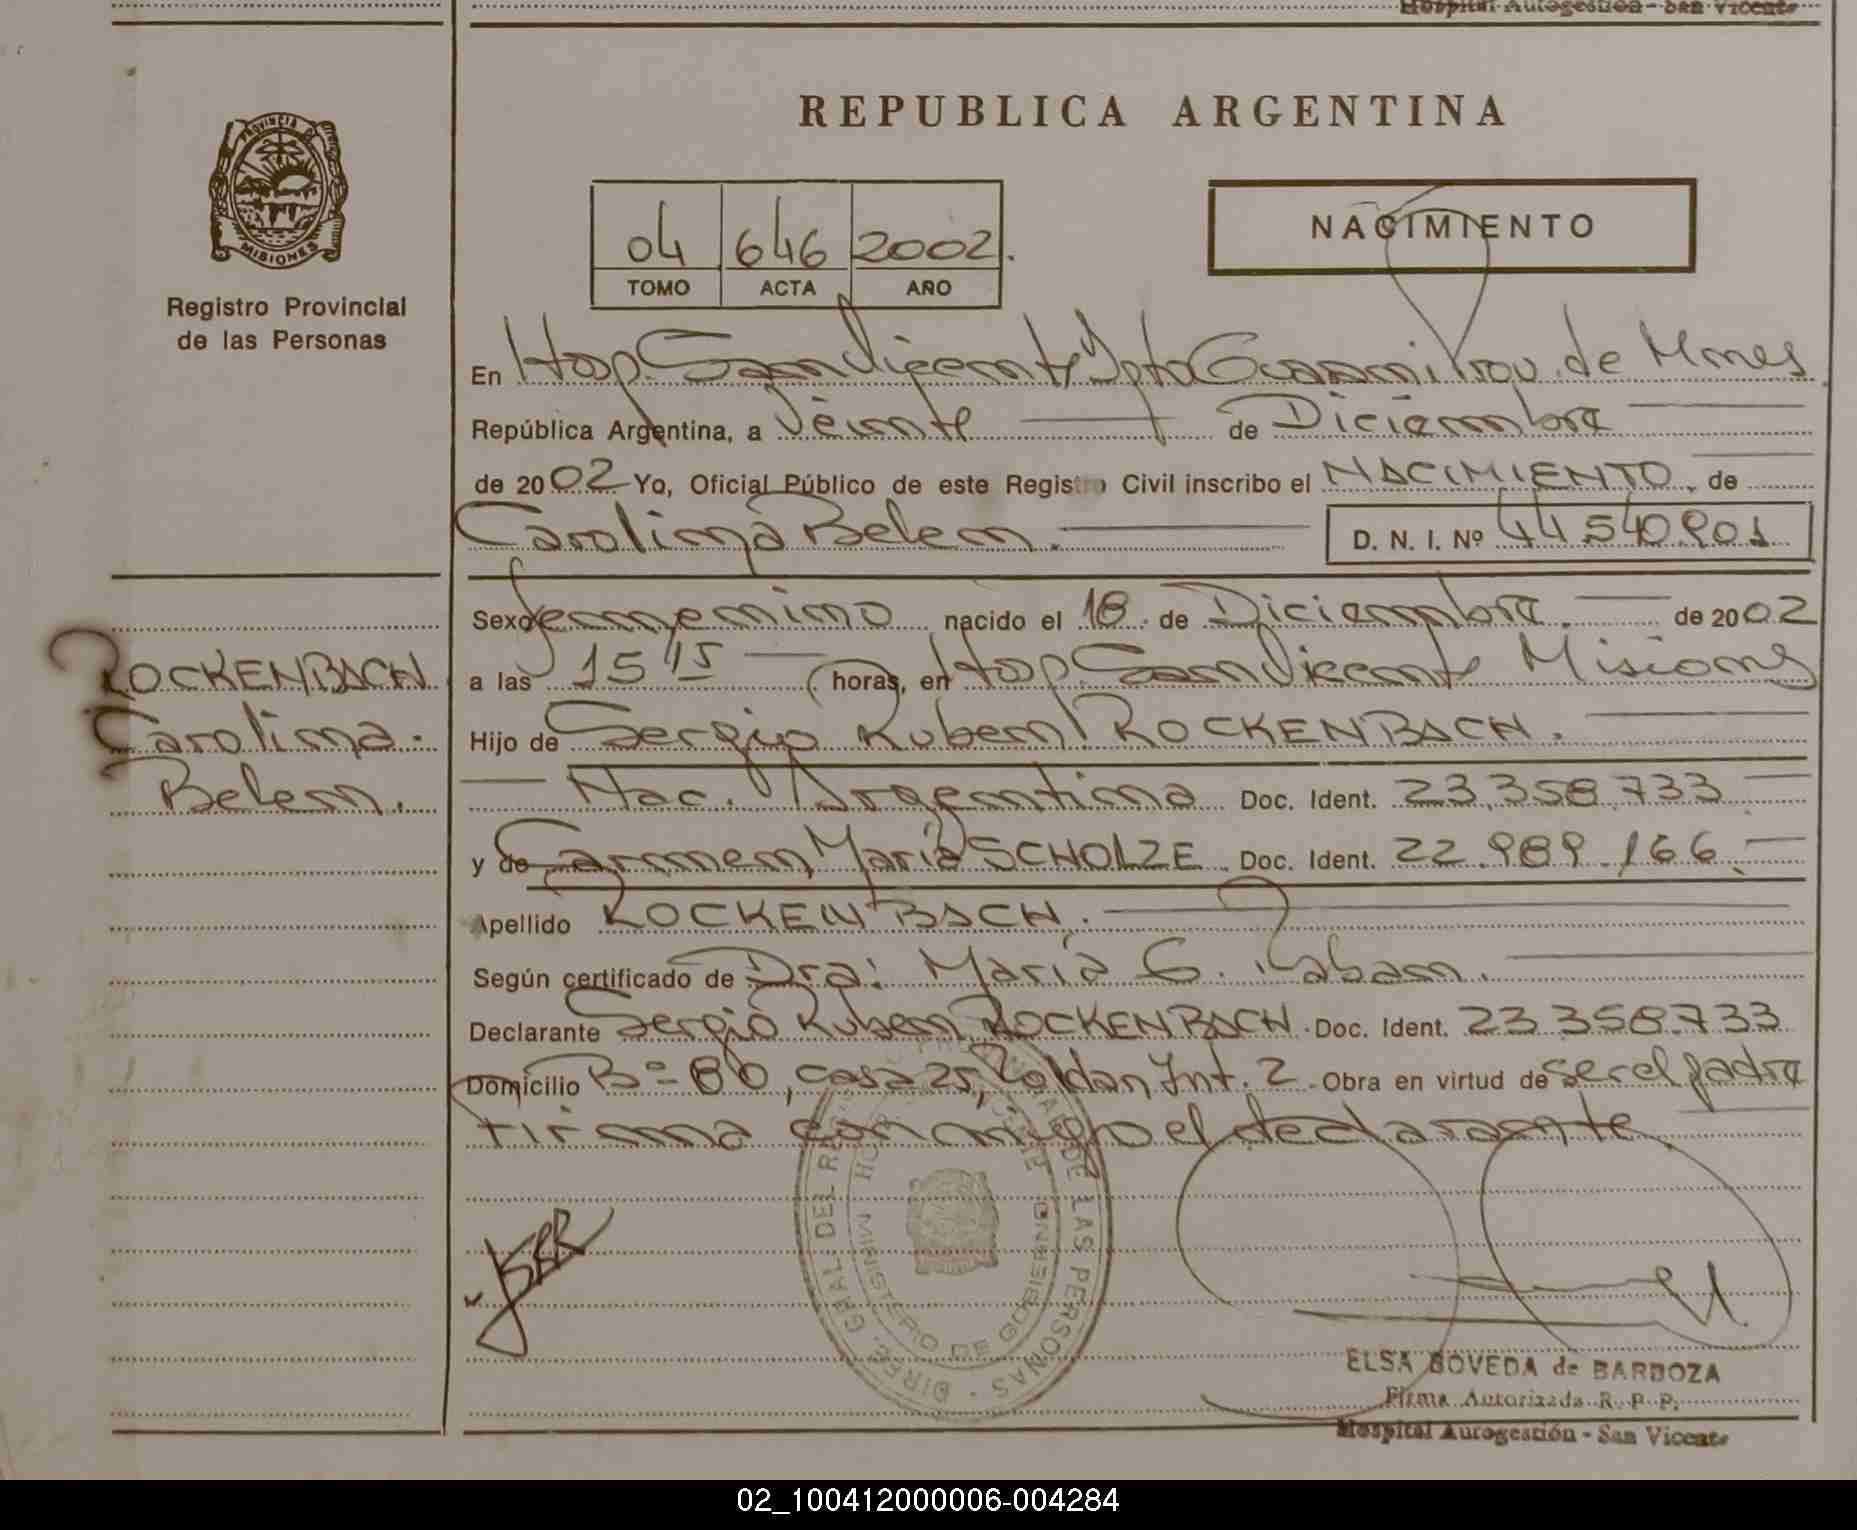 Hospital Autogestión - San Vicente
PROVINCIA DE
MISIONES
Registro Provincial
de las Personas
REPUBLICA ARGENTINA
04 646 2002.
TOMO ACTA AÑO
NACIMIENTO
En Hosp. San Vicente Dpto Guaraní Prov. de Mnes
República Argentina, a Veinte de Diciembre
de 2002 Yo, Oficial Público de este Registro Civil inscribo el NACIMIENTO de
Carolina Belem. D. N. I. Nº 44.540.901
Sexo femenino nacido el 18 de Diciembre de 2002
a las 15 15 horas, en Hosp. San Vicente Misiones
Hijo de Sergio Ruben ROCKENBACH.
Nac. Argentina Doc. Ident. 23.358.733
y de Carmen Maria SCHOLZE Doc. Ident. 22.989.166
Apellido ROCKENBACH.
Según certificado de Dra: Maria G.
Declarante Sergio Ruben ROCKENBACH Doc. Ident. 23.358.733
Domicilio Bº 80, casa 25, Roldan Int. 2 Obra en virtud de ser el padre
firma conmigo el declarante
ROCKENBACH
Carolina
Belem.
DIREC. GRAL DEL REG. PROVINCIAL DE LAS PERSONAS
MINISTERIO DE GOBIERNO
ELSA BOVEDA de BARBOZA
Firma Autorizada R. P. P.
Hospital Autogestión - San Vicente
02_100412000006-004284